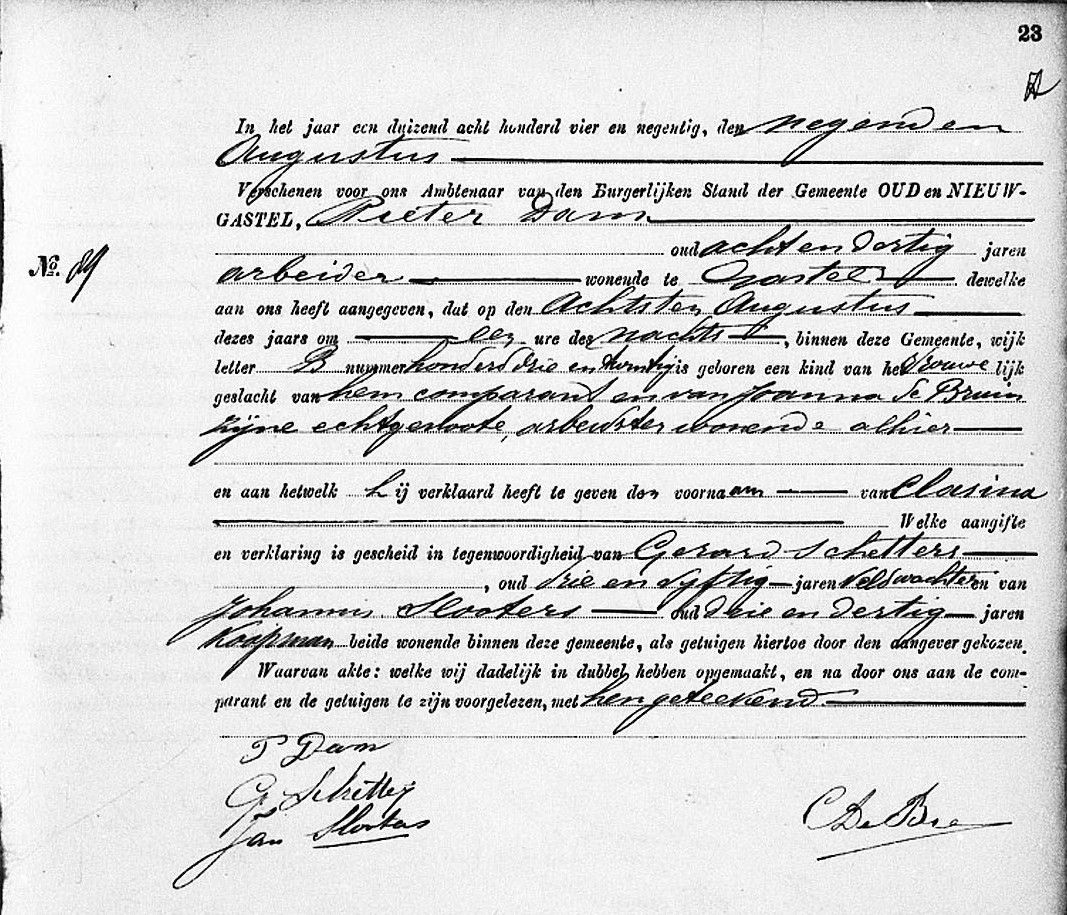 23
In het jaar een duizend acht honderd vier en negentig, den negenden
Augustus
Verschenen voor ons Ambtenaar van den Burgerlijken Stand der Gemeente OUD en NIEUW-
GASTEL, Pieter Dam
oud acht en dertig jaren
No. 89 arbeider wonende te Gastel dewelke
aan ons heeft aangegeven, dat op den achtsten Augustus
dezes jaars om een ure des nachts, binnen deze Gemeente, wijk
letter B nummer honderd drie en twintig is geboren een kind van het vrouwelijk
geslacht van hem comparant en van Joanna de Bruin
zijne echtgenoote, arbeidster wonende alhier
en aan hetwelk hij verklaard heeft te geven den voornaam van Clasina
Welke aangifte
en verklaring is geschied in tegenwoordigheid van Gerard Schetters
, oud drie en vyftig jaren veldwachter en van
Johannis Slooters oud drie en dertig jaren
koopman beide wonende binnen deze gemeente, als getuigen hiertoe door den aangever gekozen.
Waarvan akte: welke wij dadelijk in dubbel hebben opgemaakt, en na door ons aan de com-
parant en de getuigen te zijn voorgelezen, met hen geteekend
P Dam
G
Jan Slooters
C De Bre